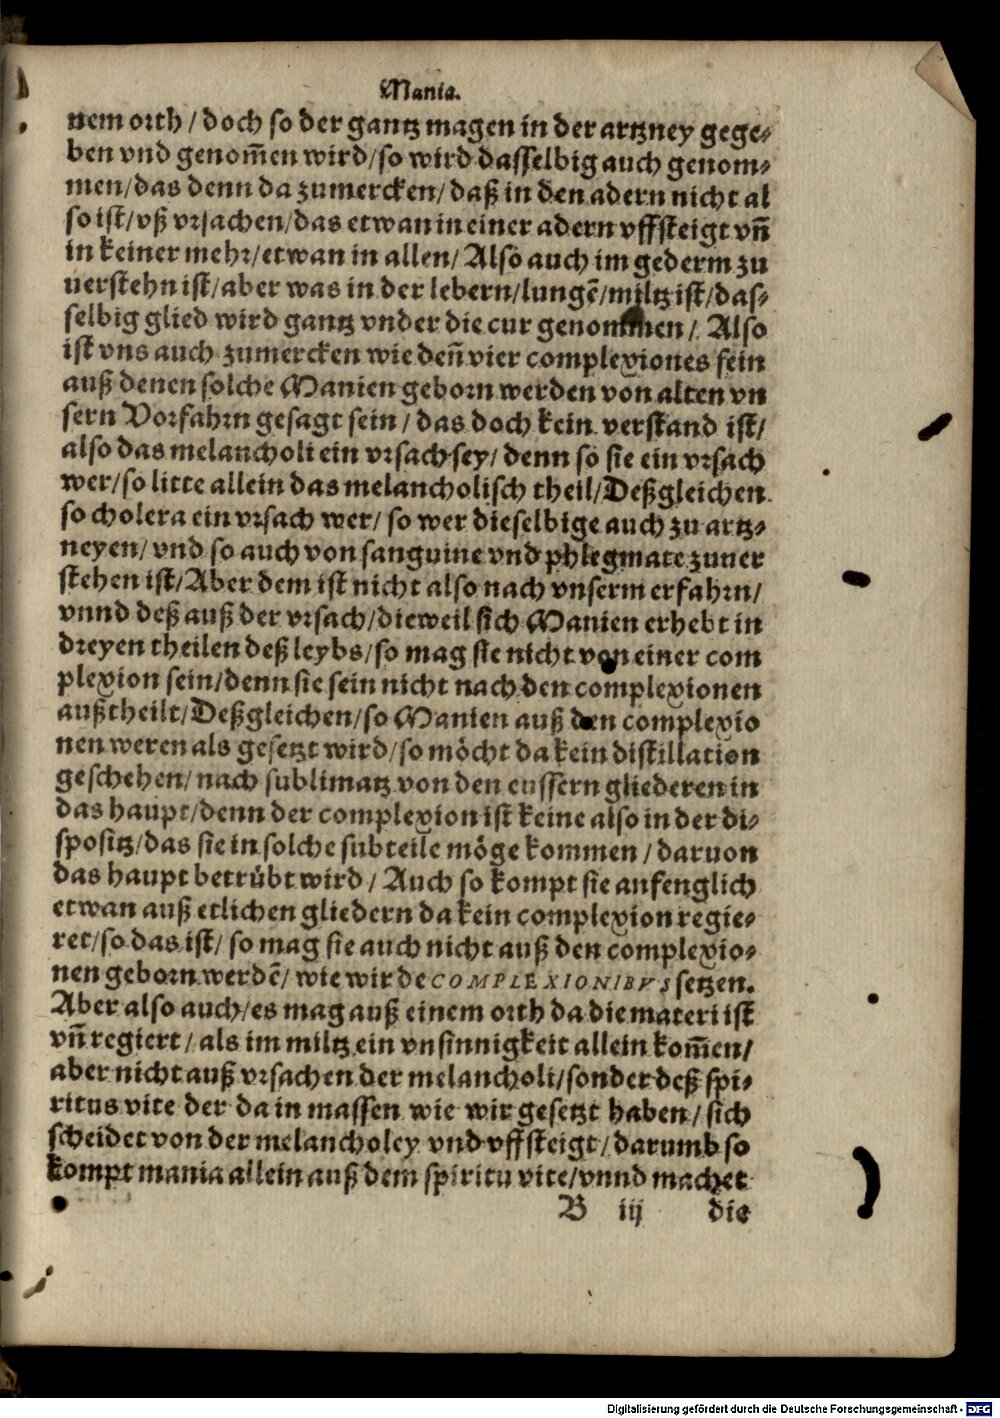 Mania.
nem orth / doch so der gantz magen in der artzney gege-
ben vnd genom̃en wird/so wird dasselbig auch genom-
men/das denn da zumercken/daß in den adern nicht al
so ist/vß vrsachen/das etwan in einer adern vffsteigt vñ
in keiner mehr/etwan in allen/ Also auch im gederm zu
uerstehn ist/aber was in der lebern/lungẽ/miltz ist/das-
selbig glied wird gantz vnder die cur genommen/ Also
ist vns auch zumercken wie deñ vier complexiones sein
auß denen solche Manien geborn werden von alten vn
sern Vorfahrn gesagt sein / das doch kein verstand ist/
also das melancholi ein vrsach sey/ denn so sie ein vrsach
wer/so litte allein das melancholisch theil/Deßgleichen
so cholera ein vrsach wer/ so wer dieselbige auch zu artz-
neyen/ vnd so auch von sanguine vnd phlegmate zuuer
stehen ist/Aber dem ist nicht also nach vnserm erfahrn/
vnnd deß auß der vrsach/dieweil sich Manien erhebt in
dreyen theilen deß leybs/so mag sie nicht von einer com
plexion sein/denn sie sein nicht nach den complexionen
außtheilt/Deßgleichen/so Manien auß den complexio
nen weren als gesetzt wird/so möcht da kein distillation
geschehen/nach sublimatz von den eussern gliederen in
das haupt/denn der complexion ist keine also in der di-
spositz/das sie in solche subteile möge kommen / daruon
das haupt betrübt wird / Auch so kompt sie anfenglich
etwan auß etlichen gliedern da kein complexion regie-
ret/so das ist/ so mag sie auch nicht auß den complexio-
nen geborn werdẽ/ wie wir de COMPLEXIONIBVS setzen.
Aber also auch/es mag auß einem orth da die materi ist
vñ regiert/als im miltz ein vnsinnigkeit allein kom̃en/
aber nicht auß vrsachen der melancholi/sonder deß spi-
ritus vite der da in massen wie wir gesetzt haben/ sich
scheidet von der melancholey vnd vffsteigt/darumb so
kompt mania allein auß dem spiritu vite/vnnd machet
B iij die
Digitalisierung gefördert durch die Deutsche Forschungsgemeinschaft - DFG